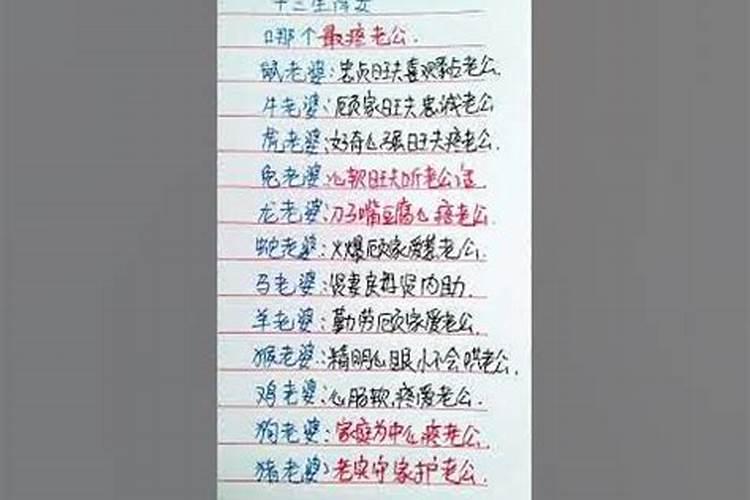 十二生肖女
哪个最疼老公.
鼠老婆:忠贞旺夫喜欢黏老公.
牛老婆:顾家旺夫忠诚老公
虎老婆:好奇心强旺夫疼老公.
兔老婆:心软旺夫听老公话
龙老婆:刀子嘴豆腐心疼老公.
蛇老婆:火爆顾家爱慕老公.
马老婆:贤妻良母贤内助.
羊老婆:勤劳顾家爱老公.
猴老婆:精明心眼小不会哄老公.
鸡老婆:心肠软,疼爱老公.
狗老婆:家庭为中心疼老公.
猪老婆:老实守家护老公.